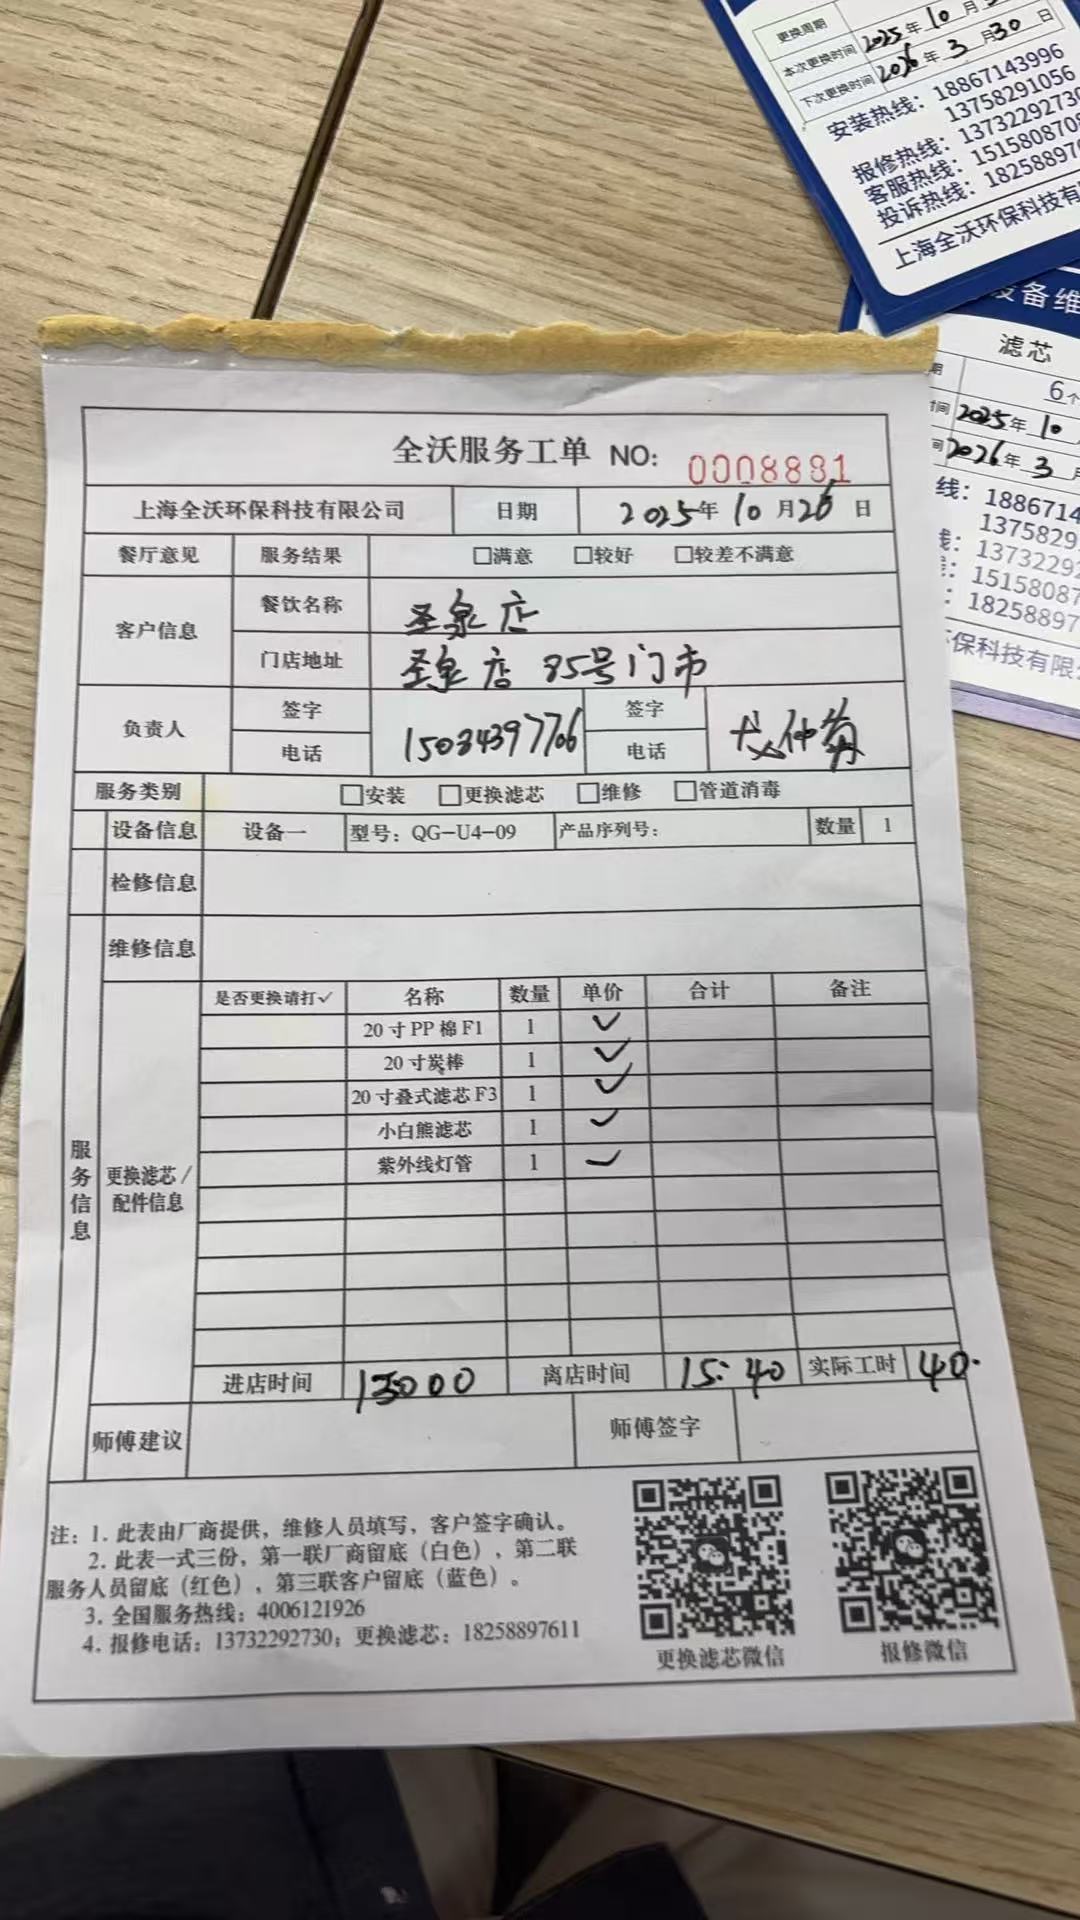 更换周期
本次更换时间 2025年10月3
下次更换时间 2026年3月30日
安装热线：18867143996
13758291056
报修热线：1373229273
客服热线：151580870
投诉热线：18258897
上海全沃环保科技有
设备维
滤芯
期 6个
时间 2025年10
间 2026年3月
线：1886714
1375829
线：1373229
：1515808
：18258897
环保科技有限
全沃服务工单 NO: 0008881
上海全沃环保科技有限公司 日期 2025年10月26日
餐厅意见 服务结果 □满意 □较好 □较差不满意
客户信息 餐饮名称 圣泉店
门店地址 圣泉店 85号门市
负责人 签字 签字
电话 15034397706 电话 仲菊
服务类别 □安装 □更换滤芯 □维修 □管道消毒
设备信息 设备一 型号：QG-U4-09 产品序列号： 数量 1
检修信息
维修信息
服务信息
更换滤芯/配件信息
是否更换请打✓ 名称 数量 单价 合计 备注
20寸PP棉F1 1 ✓
20寸炭棒 1 ✓
20寸叠式滤芯F3 1 ✓
小白熊滤芯 1 ✓
紫外线灯管 1 ✓
进店时间 离店时间 15:40 实际工时 40.
师傅建议 师傅签字
注：1. 此表由厂商提供，维修人员填写，客户签字确认。
2. 此表一式三份，第一联厂商留底（白色），第二联
服务人员留底（红色），第三联客户留底（蓝色）。
3. 全国服务热线：4006121926
4. 报修电话：13732292730；更换滤芯：18258897611
更换滤芯微信
报修微信